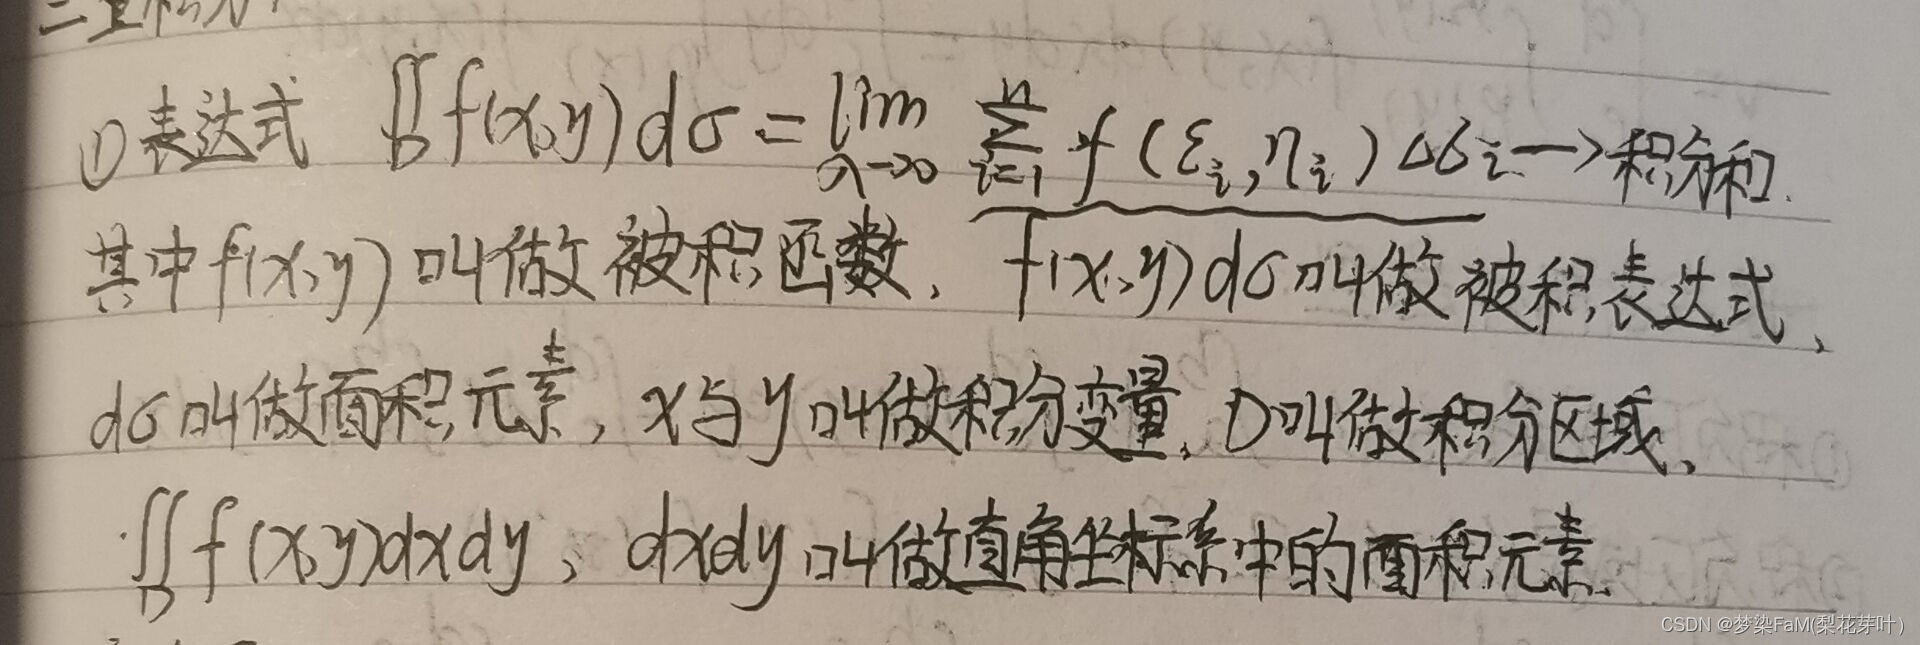 二重积分
①表达式 ∬_D f(x,y)dσ = lim_{λ→∞} ∑_{i=1}^{n} f(ε_i,η_i)Δσ_i → 积分和.
其中f(x,y)叫做被积函数、f(x,y)dσ叫做被积表达式、
dσ叫做面积元素,x与y叫做积分变量、D叫做积分区域、
∬_D f(x,y)dxdy、dxdy叫做直角坐标系中的面积元素.
CSDN @梦染FaM(梨花芽叶)